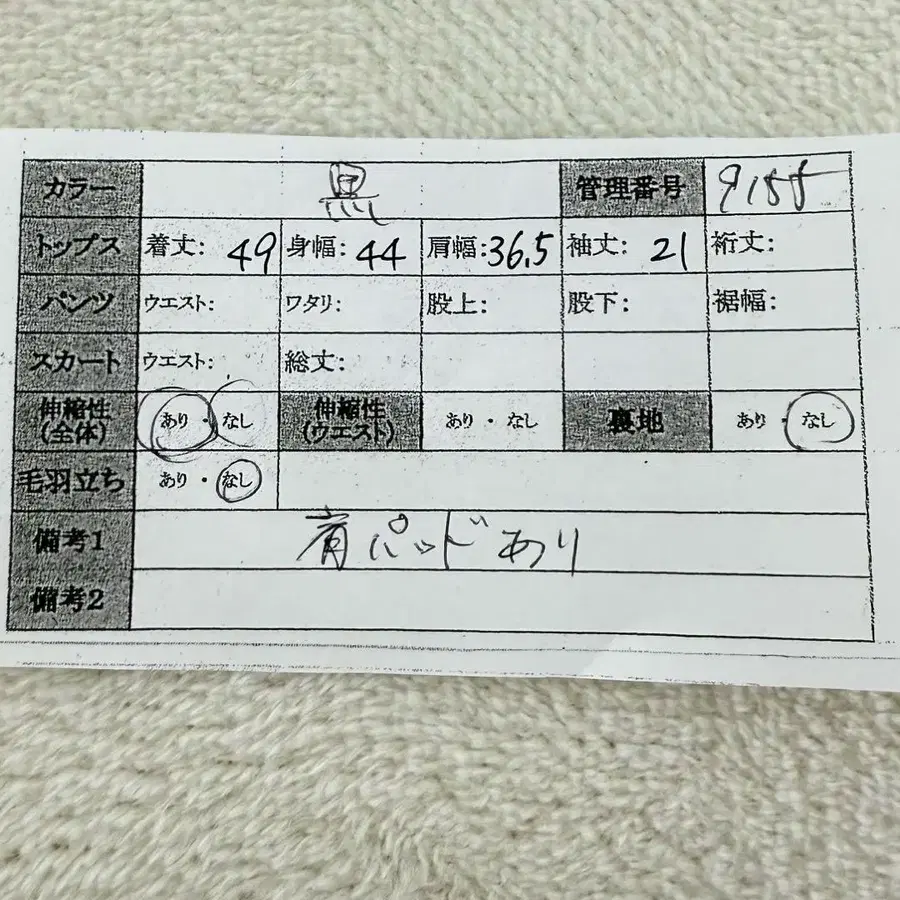 カラー 黒 管理番号 9155
トップス 着丈: 49 身幅: 44 肩幅: 36.5 袖丈: 21 裄丈:
パンツ ウエスト: ワタリ: 股上: 股下: 裾幅:
スカート ウエスト: 総丈:
伸縮性(全体) あり・なし 伸縮性(ウエスト) あり・なし 裏地 あり・なし
毛羽立ち あり・なし
備考1 肩パッドあり
備考2